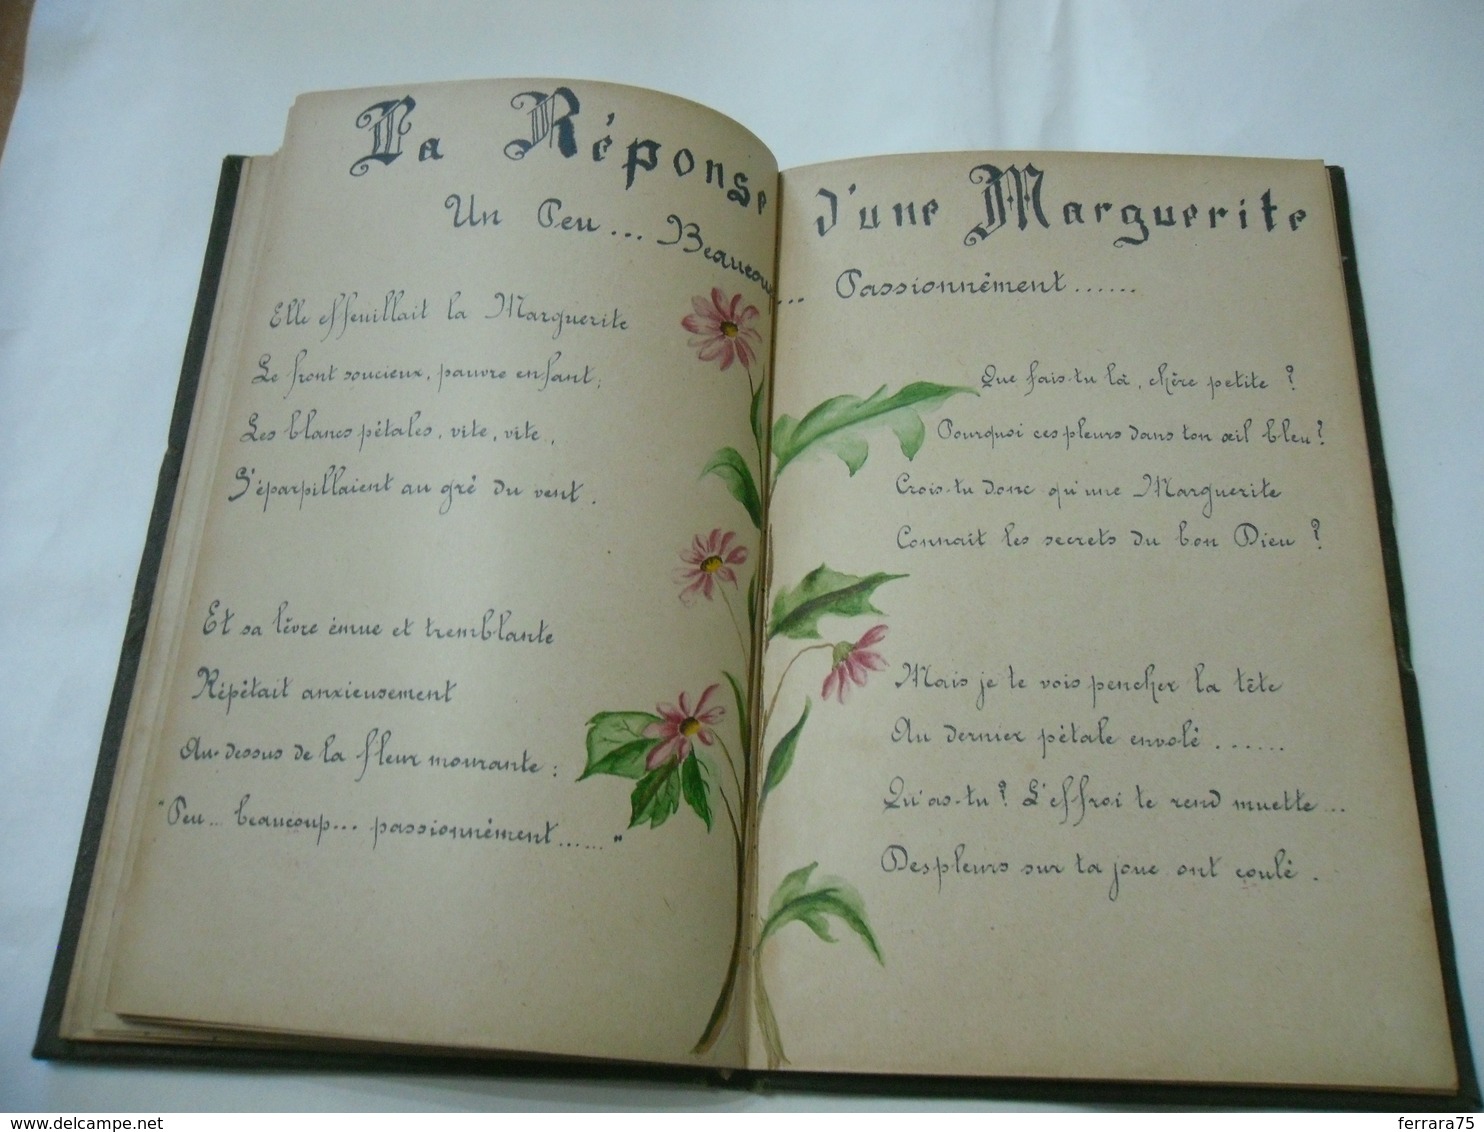 La Réponse d'une Marguerite
Un Peu... Beaucoup... Passionnément......
Elle effeuillait la Marguerite
Le front soucieux, pauvre enfant;
Les blancs pétales, vite, vite,
S'éparpillaient au gré du vent.
Et sa lèvre émue et tremblante
Répétait anxieusement
Au-dessus de la fleur mourante:
"Peu... beaucoup... passionnément......"
Que fais-tu là, chère petite?
Pourquoi ces pleurs dans ton œil bleu?
Crois-tu donc qu'une Marguerite
Connait les secrets du bon Dieu?
Mais je te vois pencher la tête
Au dernier pétale envolé......
Qu'as-tu? L'effroi te rend muette...
Des pleurs sur ta joue ont coulé.
delcampe.net
ferrara75